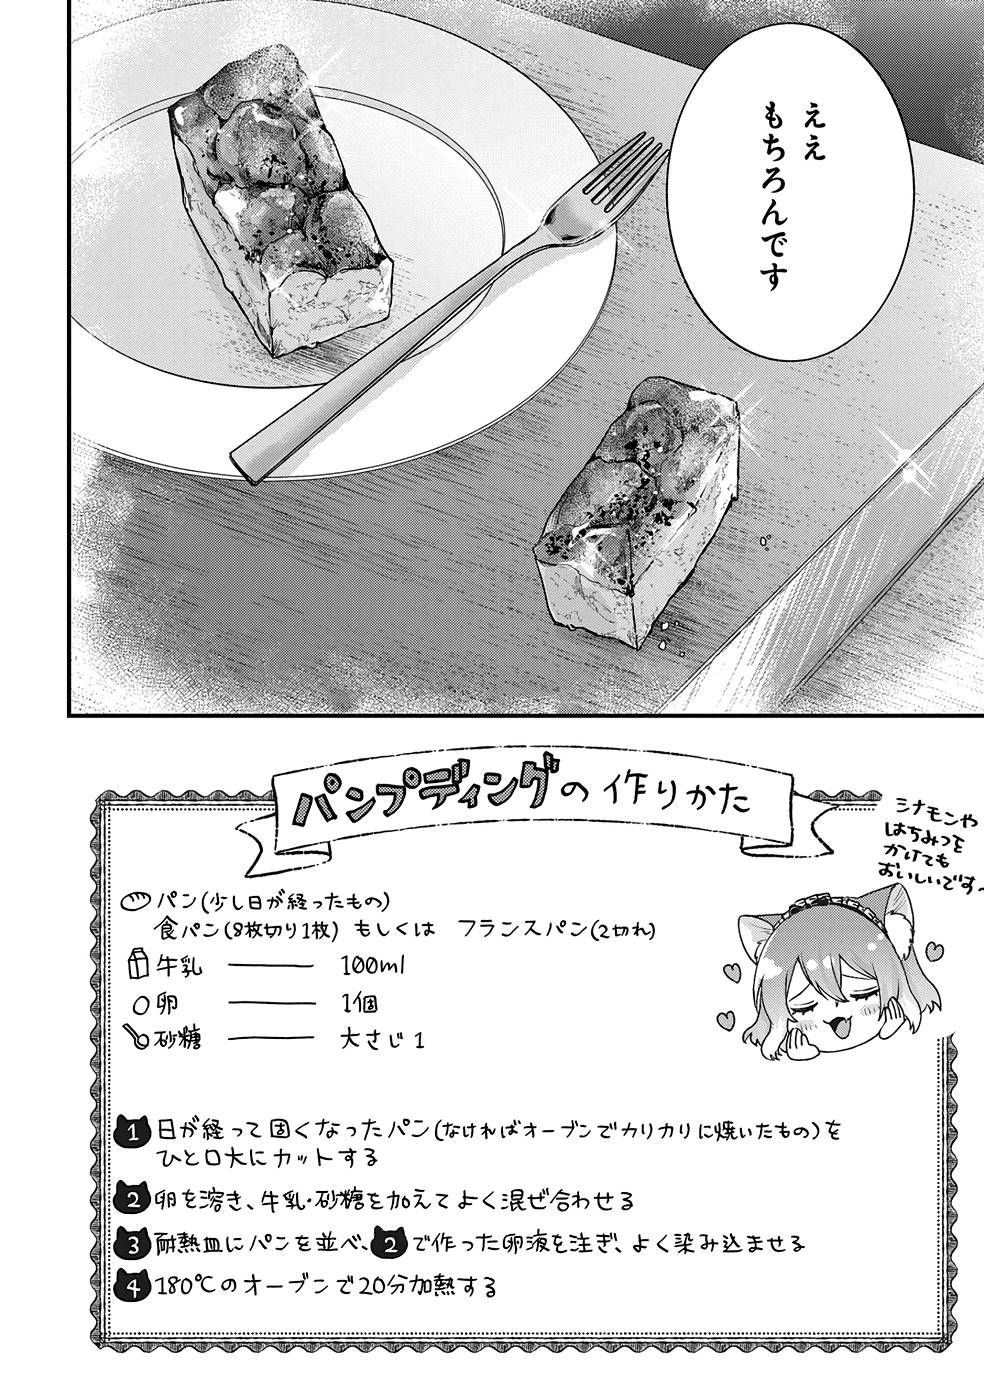 ええ
もちろんです
パンプディングの作りかた
シナモンや
はちみつを
かけても
おいしいです〜
パン(少し日が経ったもの)
食パン(8枚切り1枚) もしくは フランスパン(2切れ)
牛乳 ── 100ml
卵 ── 1個
砂糖 ── 大さじ1
1 日が経って固くなったパン(なければオーブンでカリカリに焼いたもの)を
ひと口大にカットする
2 卵を溶き、牛乳・砂糖を加えてよく混ぜ合わせる
3 耐熱皿にパンを並べ、2で作った卵液を注ぎ、よく染み込ませる
4 180℃のオーブンで20分加熱する